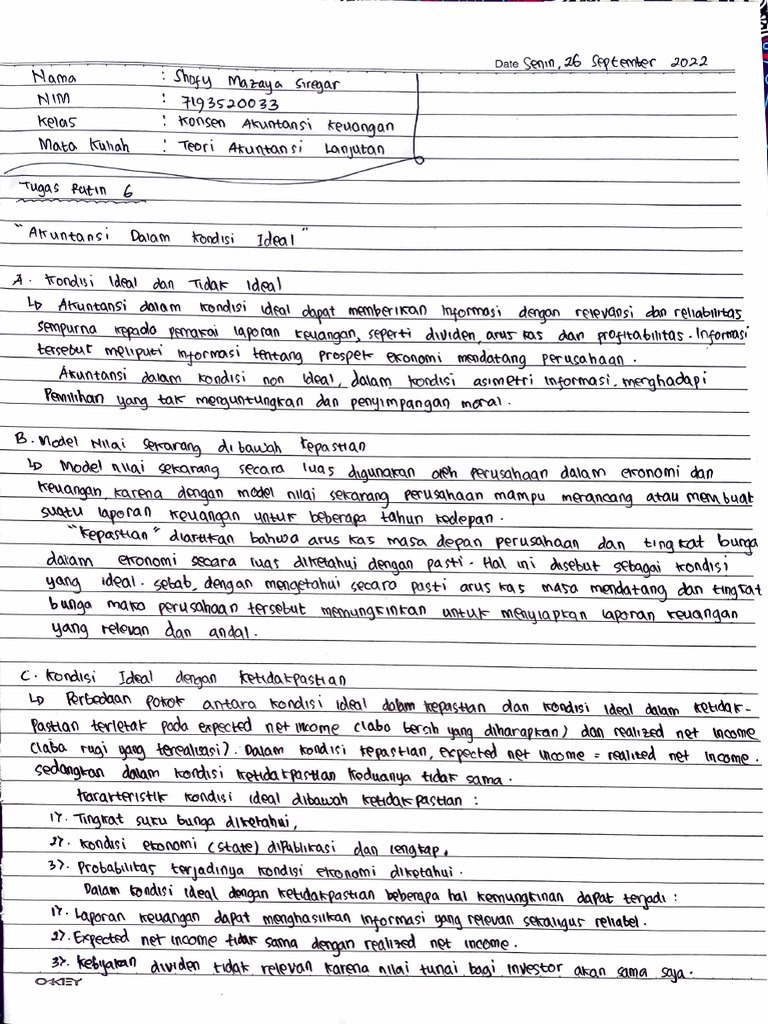 Date Senin, 26 September 2022
Nama : Shofy Mazaya Siregar
NIM : 7193520033
Kelas : Konsen Akuntansi Keuangan
Mata Kuliah : Teori Akuntansi Lanjutan
Tugas Rutin 6
"Akuntansi Dalam Kondisi Ideal"
A. Kondisi Ideal dan Tidak Ideal
↳ Akuntansi dalam kondisi ideal dapat memberikan informasi dengan relevansi dan reliabilitas
sempurna kepada pemakai laporan keuangan, seperti dividen, arus kas dan profitabilitas. Informasi
tersebut meliputi informasi tentang prospek ekonomi mendatang perusahaan.
Akuntansi dalam kondisi non ideal, dalam kondisi asimetri informasi, menghadapi
Pemilihan yang tak menguntungkan dan penyimpangan moral.
B. Model Nilai sekarang dibawah kepastian
↳ Model nilai sekarang secara luas digunakan oleh perusahaan dalam ekonomi dan
keuangan, karena dengan model nilai sekarang perusahaan mampu merancang atau membuat
suatu laporan keuangan untuk beberapa tahun kedepan.
"Kepastian" diartikan bahwa arus kas masa depan perusahaan dan tingkat bunga
dalam ekonomi secara luas diketahui dengan pasti. Hal ini disebut sebagai kondisi
yang ideal. sebab, dengan mengetahui secara pasti arus kas masa mendatang dan tingkat
bunga maka perusahaan tersebut memungkinkan untuk menyiapkan laporan keuangan
yang relevan dan andal.
C. Kondisi Ideal dengan ketidakpastian
↳ Perbedaan pokok antara kondisi ideal dalam kepastian dan kondisi ideal dalam ketidak-
pastian terletak pada expected net income (laba bersih yang diharapkan) dan realized net income
(laba rugi yang terealisasi). Dalam kondisi kepastian, expected net income = realized net income.
sedangkan dalam kondisi ketidakpastian keduanya tidak sama.
Karakteristik kondisi ideal dibawah ketidakpastian :
1). Tingkat suku bunga diketahui,
2). Kondisi ekonomi (state) dipublikasi dan lengkap,
3). Probabilitas terjadinya kondisi ekonomi diketahui.
Dalam kondisi ideal dengan ketidakpastian beberapa hal kemungkinan dapat terjadi :
1). Laporan keuangan dapat menghasilkan informasi yang relevan sekaligus reliabel.
2). Expected net income tidak sama dengan realized net income.
3). Kebijakan dividen tidak relevan karena nilai tunai bagi investor akan sama saja.
OKEY